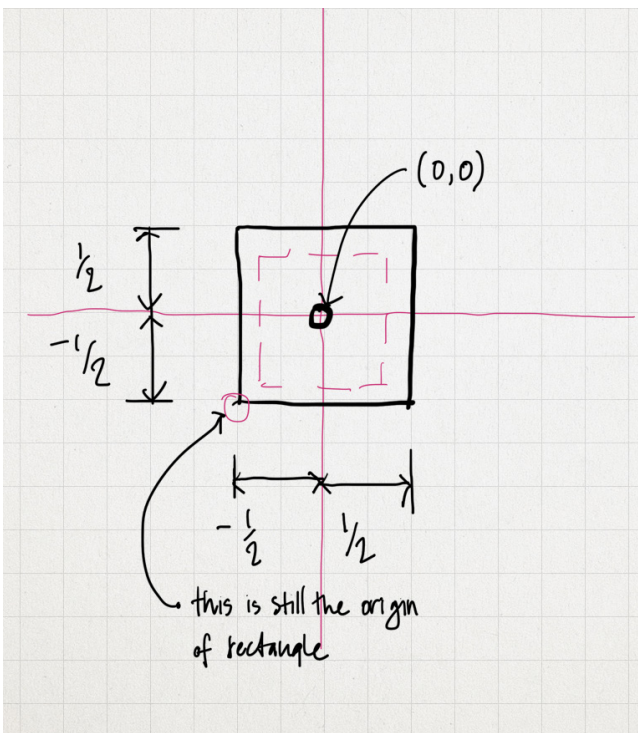 (0,0)
1/2
-1/2
-1/2
1/2
this is still the origin
of rectangle